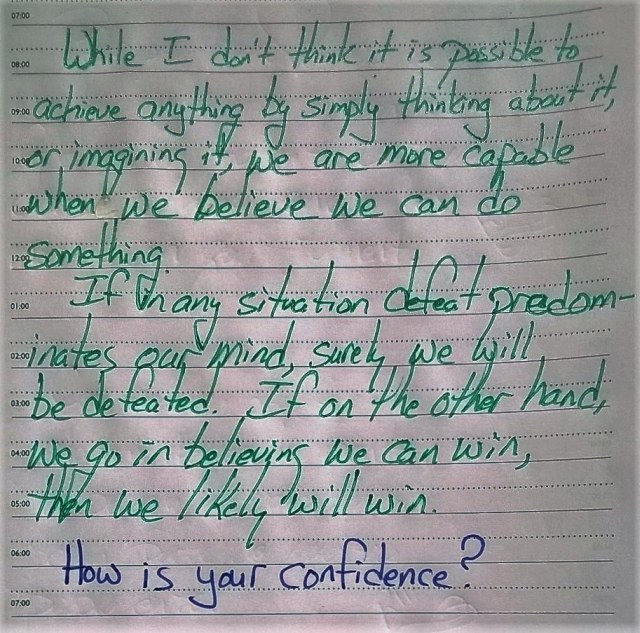 07:00
While I don't think it is possible to
08:00
achieve anything by simply thinking about it,
09:00
or imagining it, we are more capable
10:00
when we believe we can do
11:00
something.
12:00
If in any situation defeat predom-
01:00
inates our mind, surely we will
02:00
be defeated. If on the other hand,
03:00
we go in believing we can win,
04:00
then we likely will win.
05:00
06:00
How is your confidence?
07:00